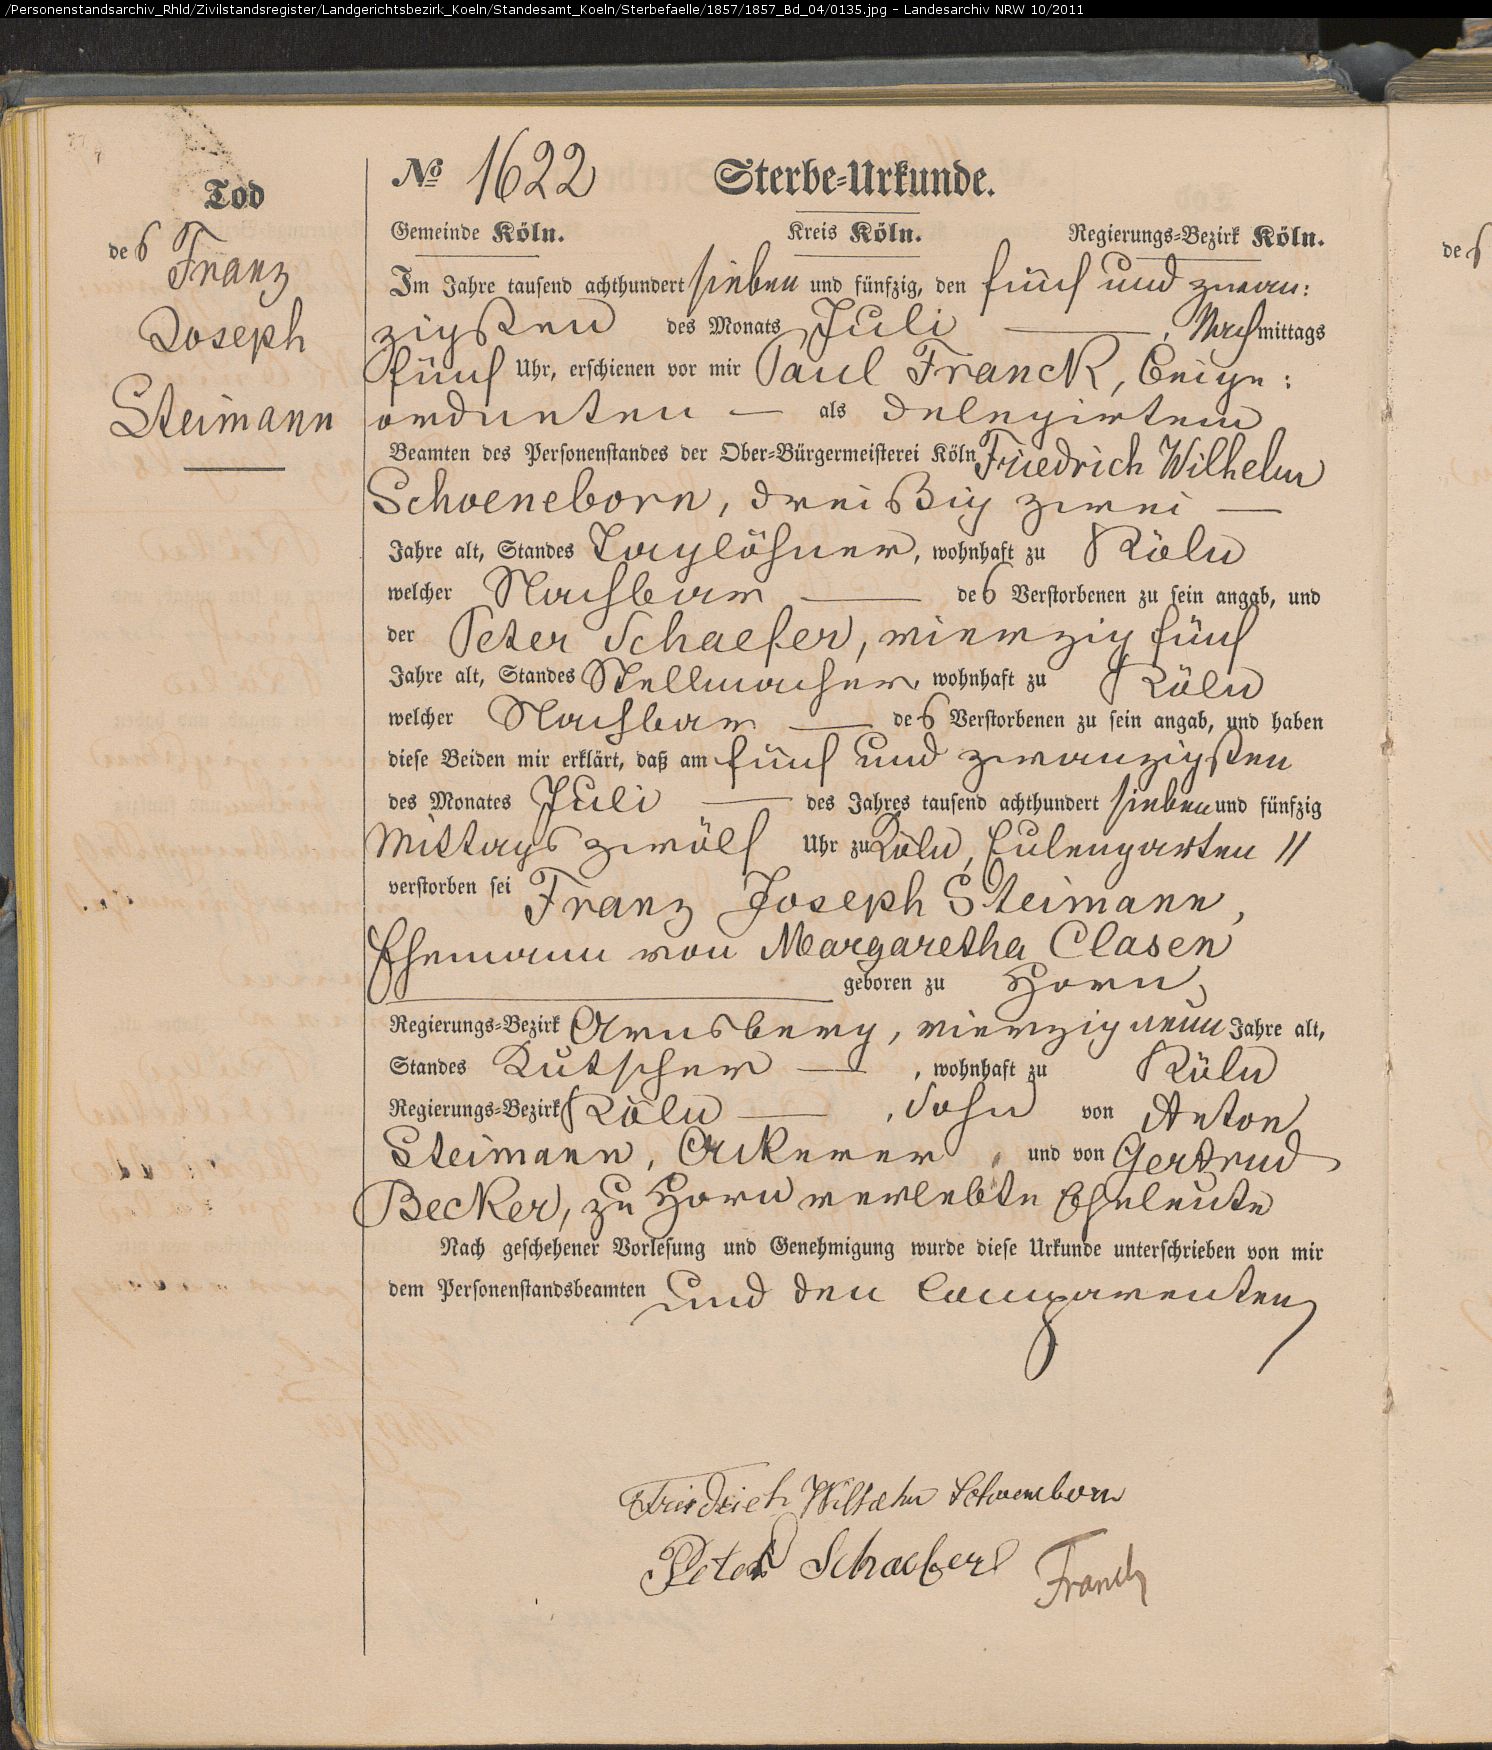 /Personenstandsarchiv_Rhld/Zivilstandsregister/Landgerichtsbezirk_Koeln/Standesamt_Koeln/Sterbefaelle/1857/1857_Bd_04/0135.jpg - Landesarchiv NRW 10/2011
Tod
des Franz
Joseph
Steimann
No 1622 Sterbe-Urkunde.
Gemeinde Köln. Kreis Köln. Regierungs-Bezirk Köln.
Im Jahre tausend achthundert sieben und fünfzig, den fünf und zwan:
zigsten des Monats Juli, Nachmittags
fünf Uhr, erschienen vor mir Paul Franck, Beige:
ordneten als delegirtem
Beamten des Personenstandes der Ober-Bürgermeisterei Köln Friedrich Wilhelm
Schoeneborn, dreißig zwei
Jahre alt, Standes Taglöhner, wohnhaft zu Köln
welcher Nachbar des Verstorbenen zu sein angab, und
der Peter Schaefer, vierzig fünf
Jahre alt, Standes Stellmacher, wohnhaft zu Köln
welcher Nachbar des Verstorbenen zu sein angab, und haben
diese Beiden mir erklärt, daß am fünf und zwanzigsten
des Monates Juli des Jahres tausend achthundert sieben und fünfzig
Mittags zwölf Uhr zu Köln, Eulengarten 11
verstorben sei Franz Joseph Steimann,
Ehemann von Margaretha Clasen
geboren zu Horn,
Regierungs-Bezirk Arnsberg, vierzig neun Jahre alt,
Standes Kutscher, wohnhaft zu Köln
Regierungs-Bezirk Köln, Sohn von Anton
Steimann, Ackerer, und von Gertrud
Becker, zu Horn verlebte Eheleute
Nach geschehener Vorlesung und Genehmigung wurde diese Urkunde unterschrieben von mir
dem Personenstandsbeamten und den Comparenten
Friedrich Wilhelm Schoeneborn
Peter Schaefer Franck
des